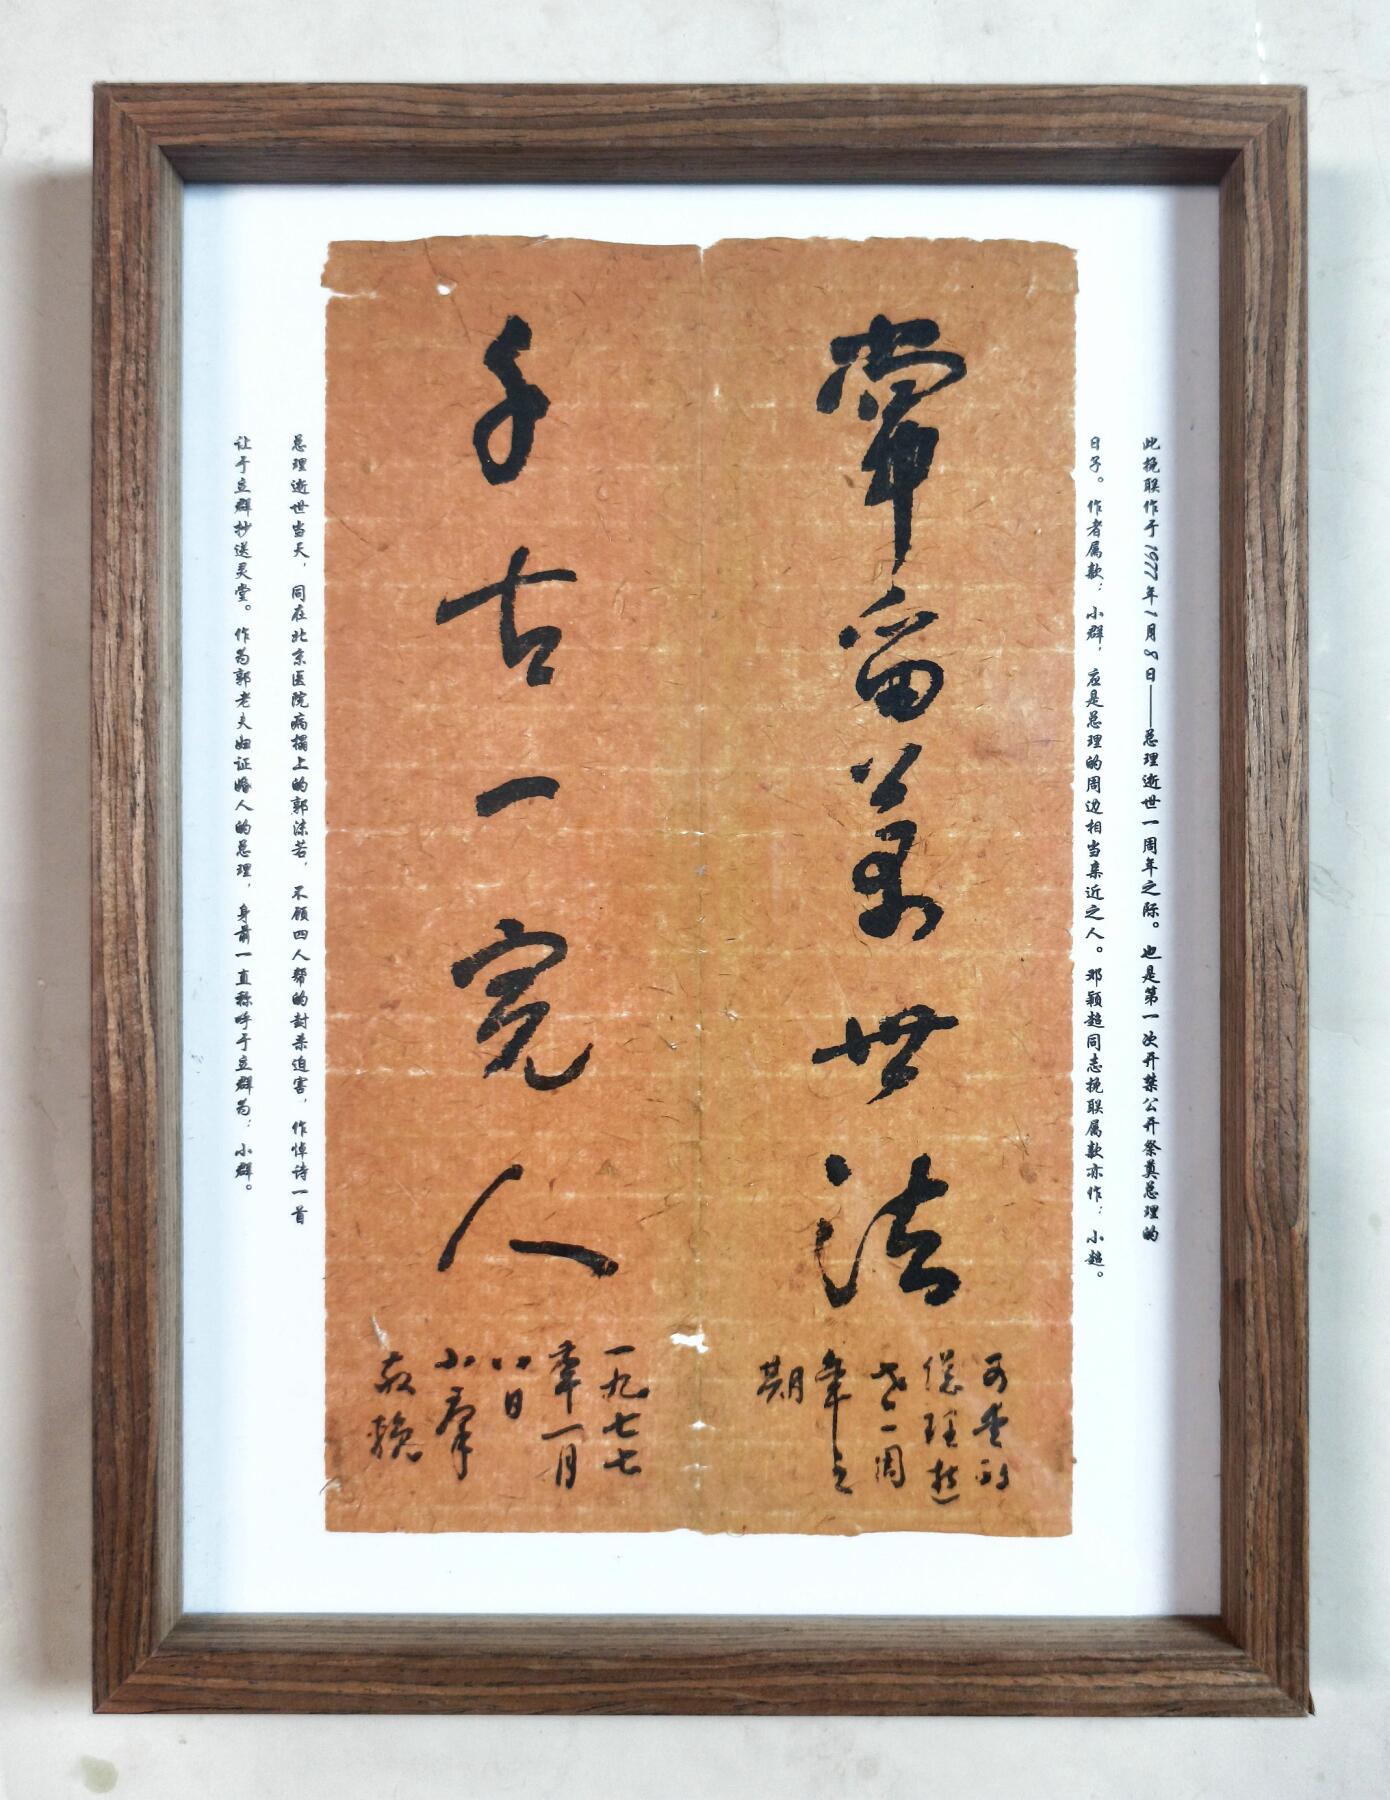 此挽联作于1977年1月8日——总理逝世一周年之际。也是第一次开禁公开祭奠总理的
日子。作者属款：小群，应是总理的周边相当亲近之人。邓颖超同志挽联属款亦作：小超。
常留萬世法
可愛的
總理逝
世一周
年之
期
千古一完人
一九七七
年一月
八日
小羣
敬輓
总理逝世当天，同在北京医院病榻上的郭沫若，不顾四人帮的封杀迫害，作悼诗一首
让于立群抄送灵堂。作为郭老夫妇证婚人的总理，身前一直称呼于立群为：小群。